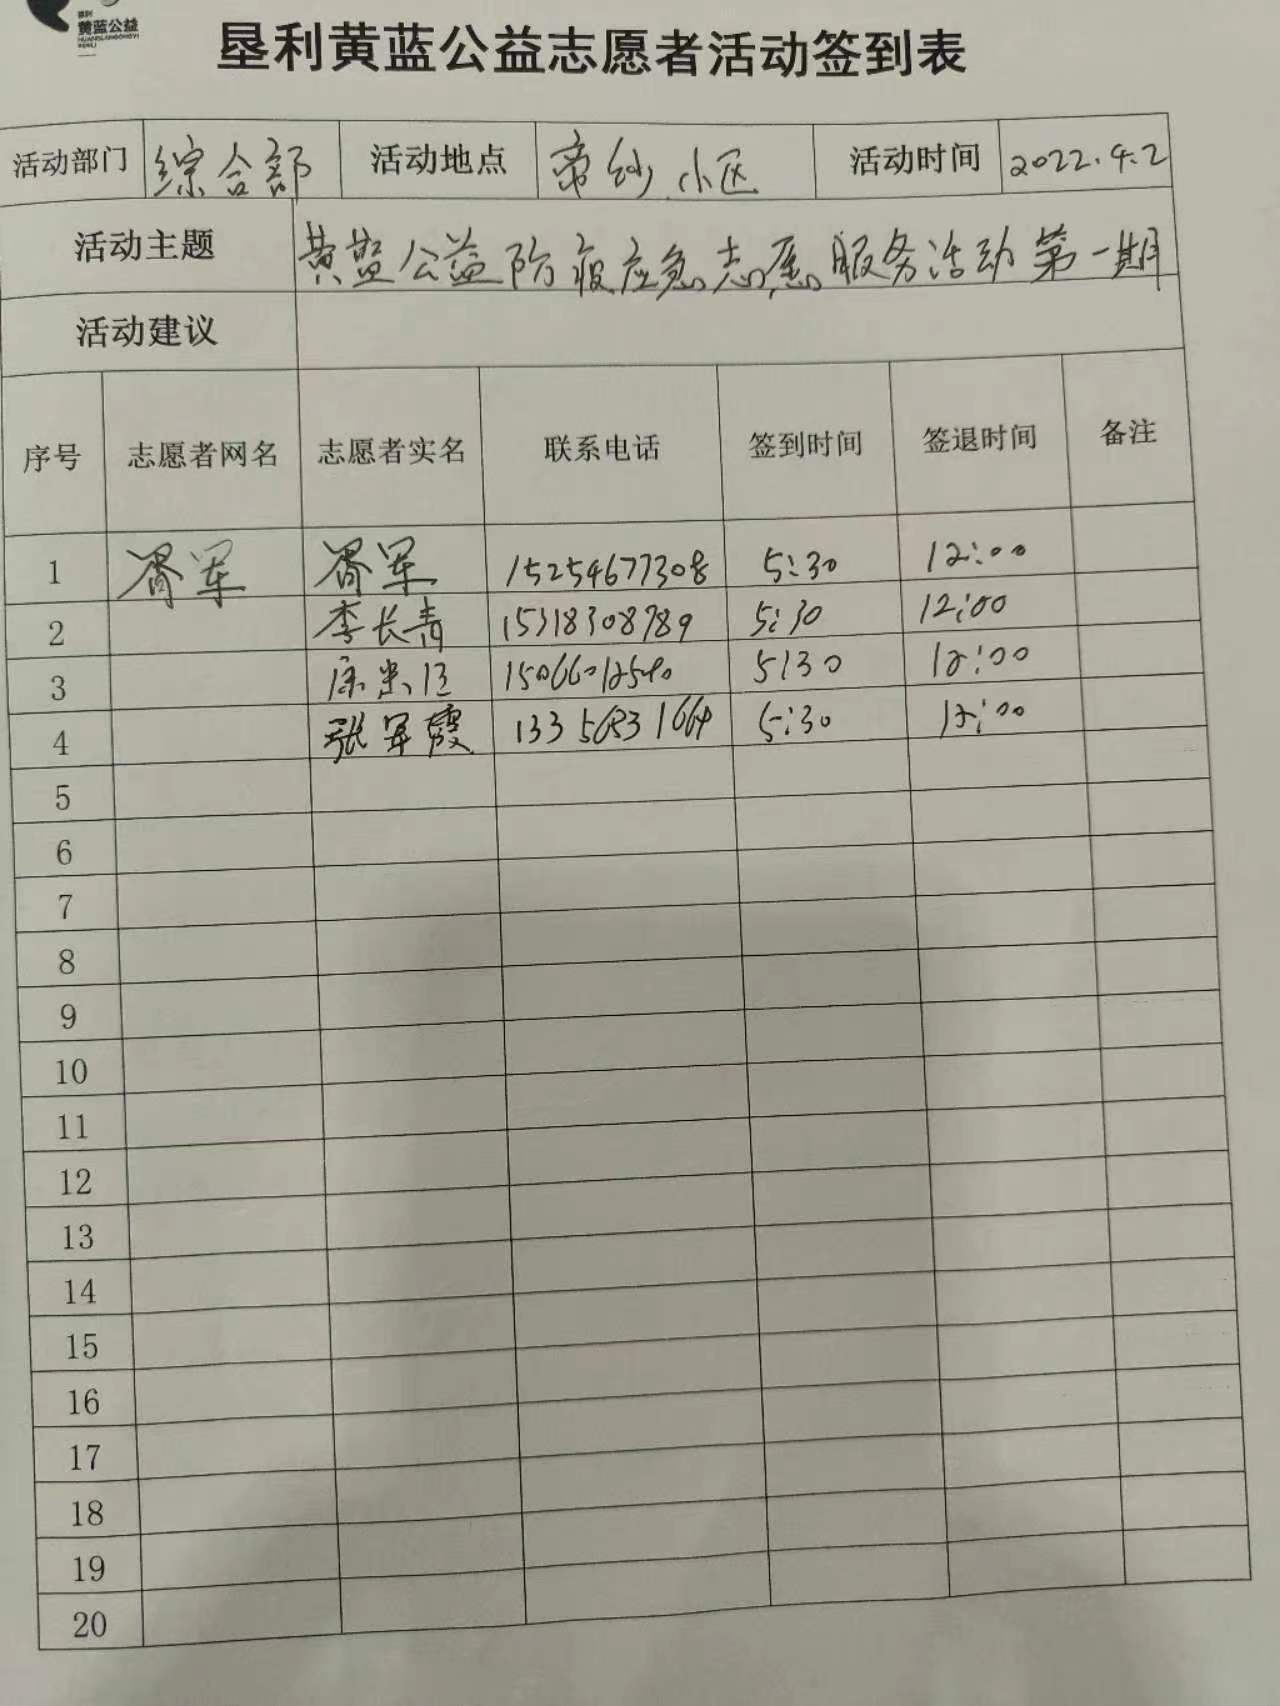 垦利
黄蓝公益
HUANGLANGONGYI
KENLI
垦利黄蓝公益志愿者活动签到表
活动部门 综合部 活动地点 帝 小区 活动时间 2022.4.2
活动主题 黄蓝公益防疫应急志愿服务活动第一期
活动建议
序号 志愿者网名 志愿者实名 联系电话 签到时间 签退时间 备注
1 胥军 胥军 15254677308 5:30 12:00
2 李长青 15318308789 5:30 12:00
3 5:30 12:00
4 张军霞 13356831664 5:30 12:00
5
6
7
8
9
10
11
12
13
14
15
16
17
18
19
20